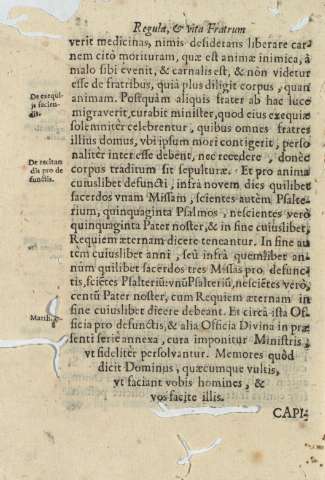 Regulæ, & vita Fratrum
verit medicinas, nimis desiderans liberare car-
nem citò morituram, quæ est animæ inimica, à
malo sibi evenit, & carnalis est, & nòn videtur
esse de fratribus, quià plus diligit corpus, quàm
animam. Postquàm aliquis frater ab hac luce
migraverit, curabit minister, quod eius exequiæ
solemnitèr celebrentur, quibus omnes fratres
illius domus, vbi ipsum mori contigerit, perso-
nalitèr inter esse debent, nec recedere, donèc
corpus traditum sit sepulturæ. Et pro anima
cuiuslibet defuncti, infrà novem dies quilibet
sacerdos vnam Missam, scientes autèm Psalte-
rium, quinquaginta Psalmos, nescientes verò
quinquaginta Pater noster, & in fine cuiuslibet,
Requiem æternam dicere teneantur. In fine au-
tèm cuiuslibet anni, seù infrà quemlibet an-
num quilibet sacerdos tres Missas pro defunc-
tis, sciẽtes Psalteriũ vnũ Psalteriũ, nesciẽtes verò,
centũ Pater noster, cum Requiem æternam in
fine cuiuslibet dicere debeant. Et circà ista Of-
ficia pro defunctis, & alia Officia Divina in præ-
senti serie annexa, cura imponitur Ministris,
vt fidelitèr persolvantur. Memores quòd
dicit Dominus, quæcumque vultis,
vt faciant vobis homines, &
vos facite illis.
CAPI-
De exequijs
facien-
dis.
De recitan
dis pro de
functis.
Matth. 7.